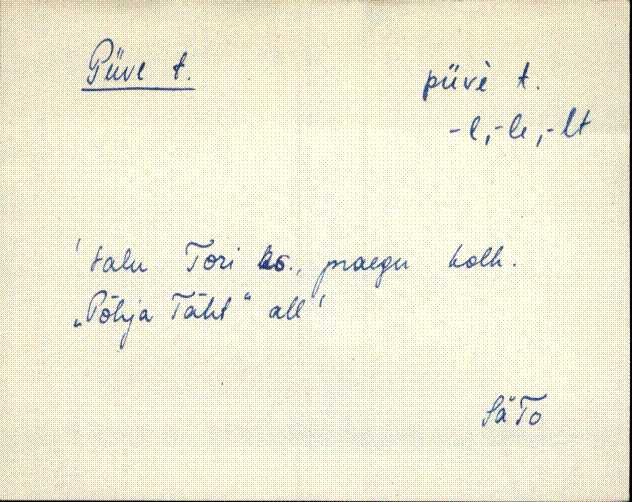 Püve t.
püvè t.
-l, -le, -lt
'talu Tori ks., praegu kolh.
„Põhja Täht" all'
SäTo